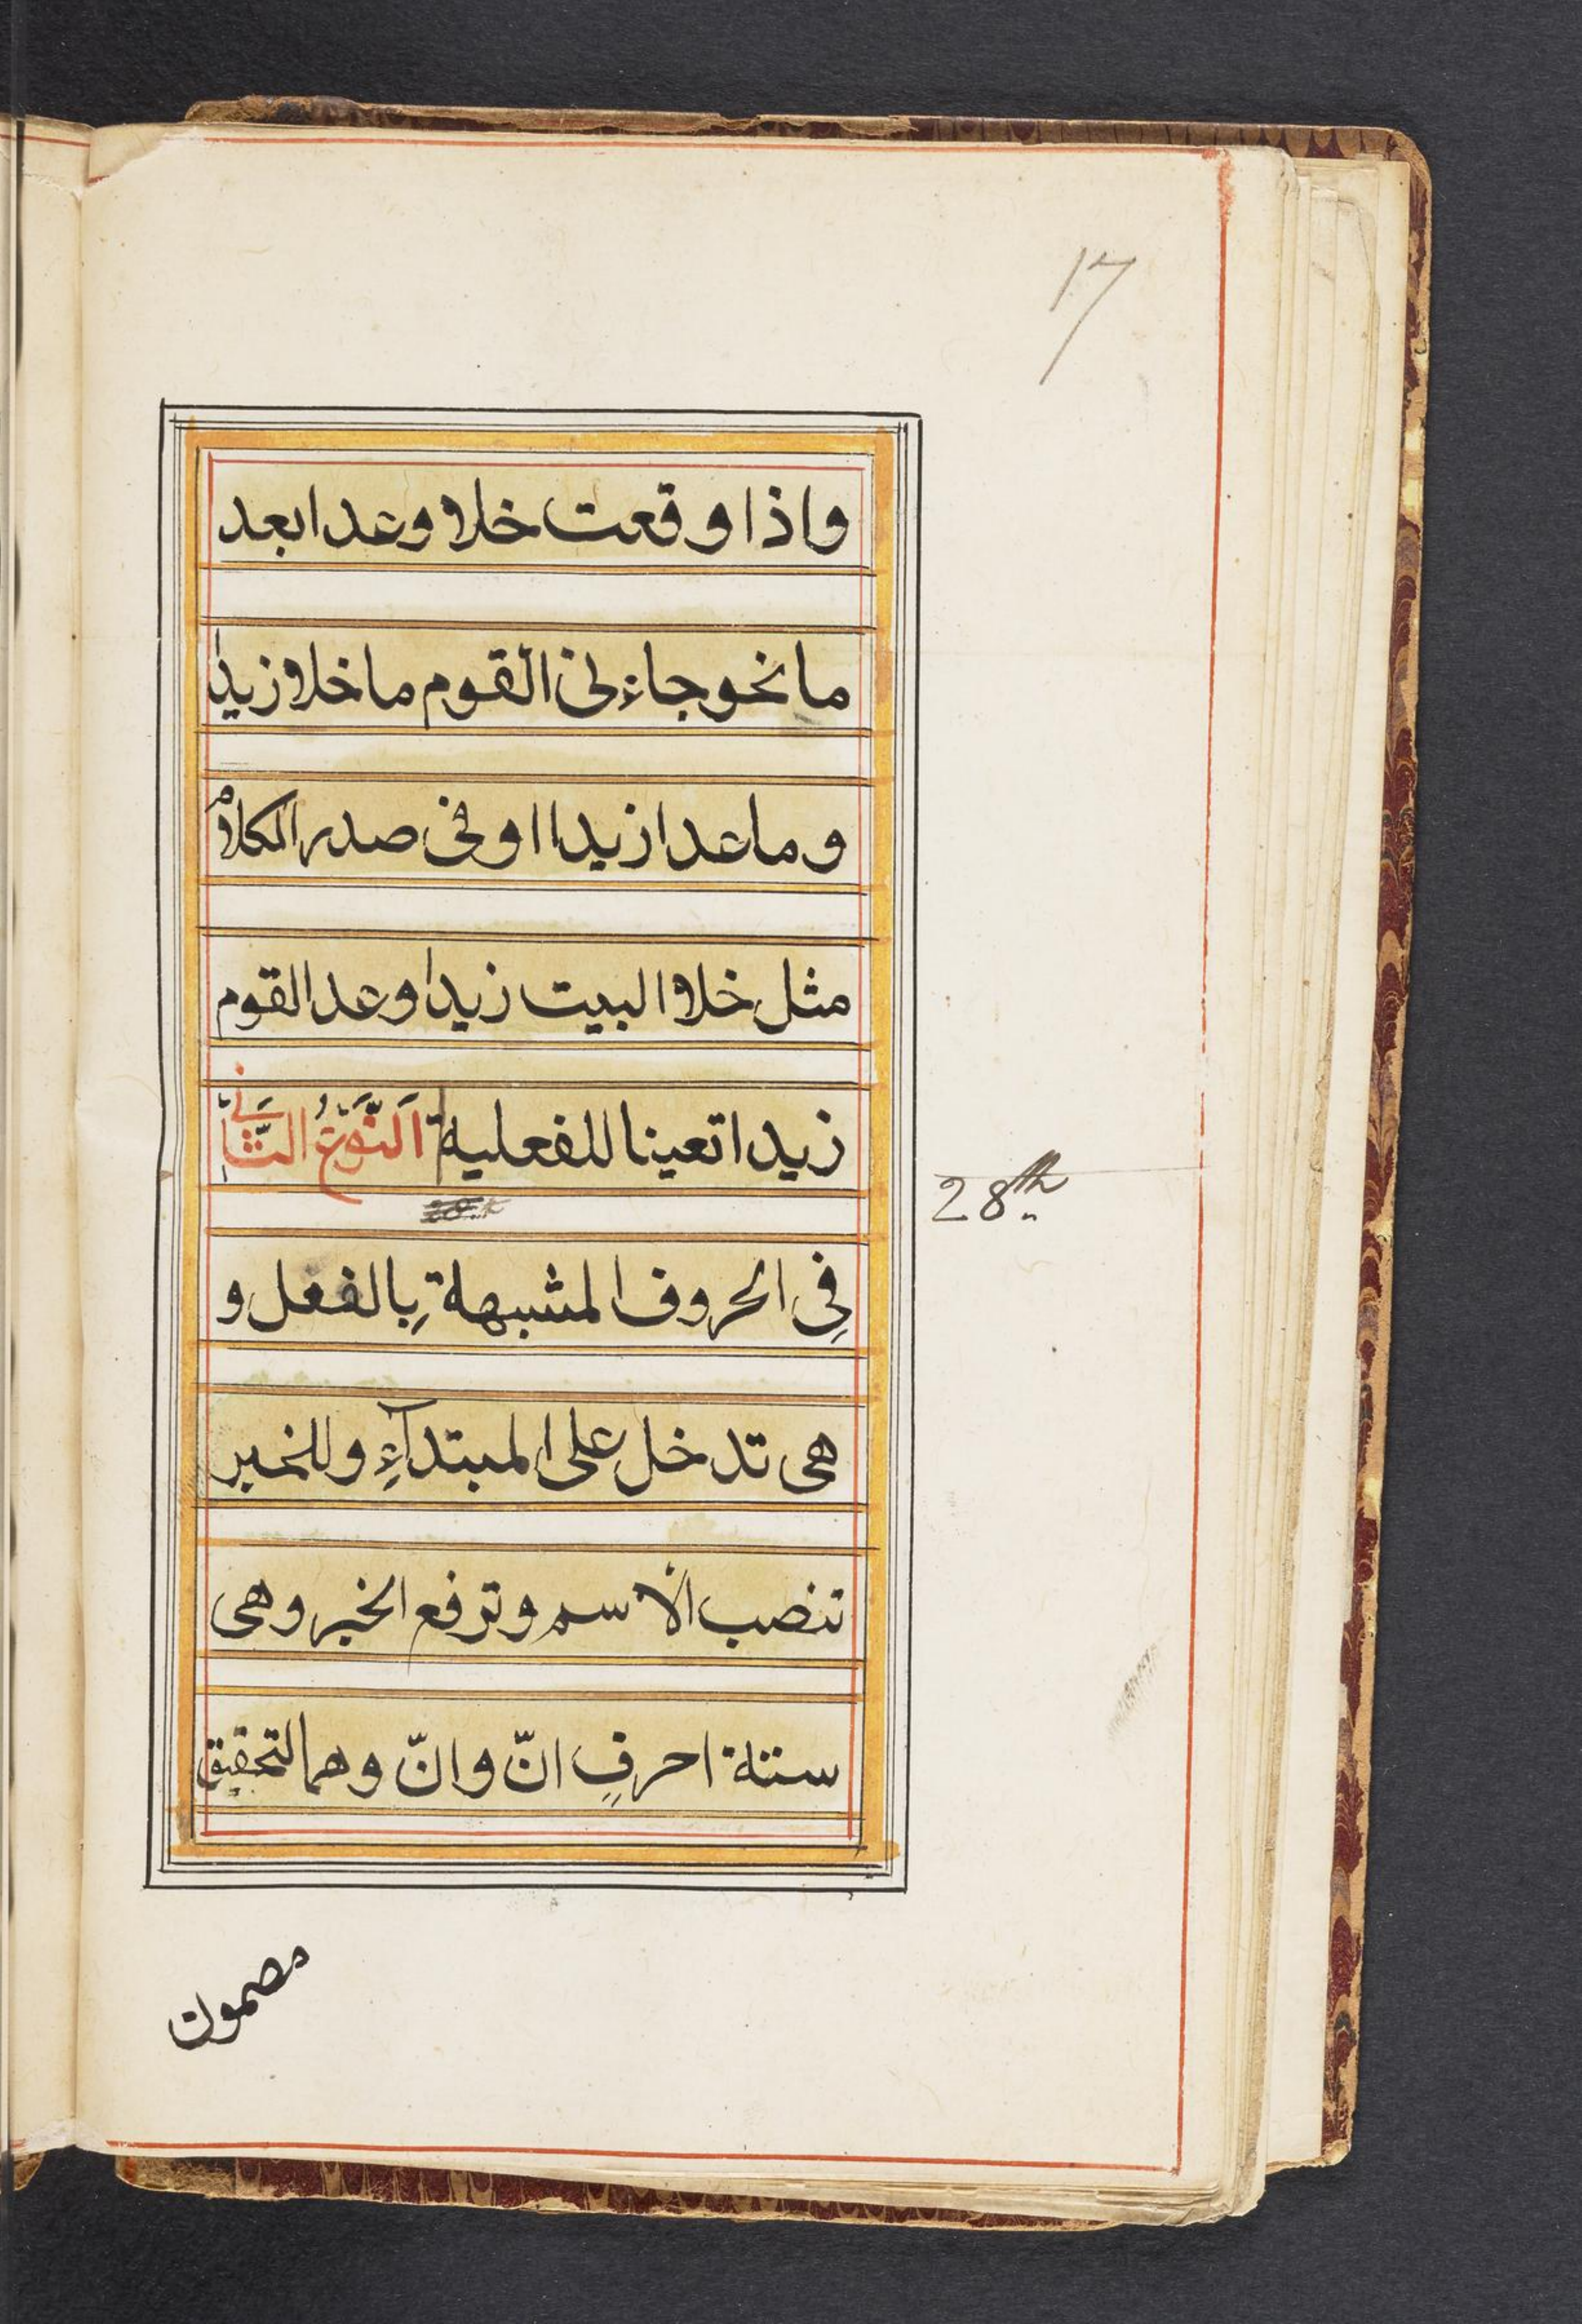 17
واذا وقعت خلا وعدا بعد
ما نحو جاءنى القوم ما خلا زيدا
وما عدا زيدا او فى صدر الكلام
مثل خلا البيت زيدا وعدا القوم
زيدا تعينا للفعلية اَلنَّوْعُ الثَّانِي
28th
فِي الحروف المشبهة بِالفعل و
هى تدخل على المبتدآءِ وللخبر
تنصب الاسم وترفع الخبر وهى
ستة احرفٍ انّ وانّ وهما لتحقيق
مضمون